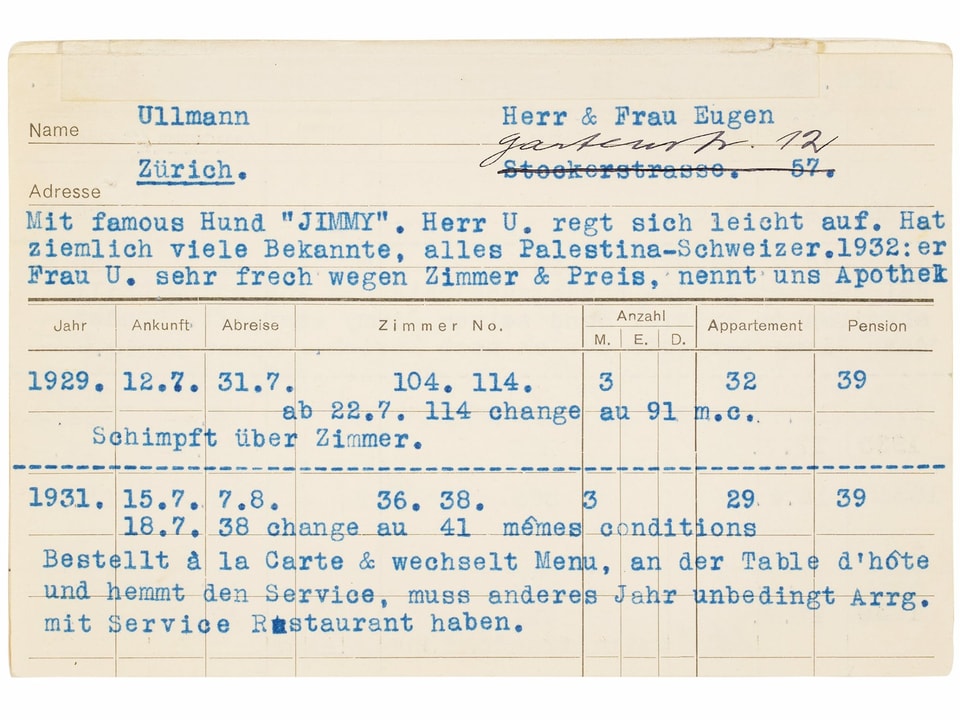 Name Ullmann Herr & Frau Eugen
Gartenstr. 12
Adresse Zürich. Stockerstrasse. 57.
Mit famous Hund "JIMMY". Herr U. regt sich leicht auf. Hat
ziemlich viele Bekannte, alles Palestina-Schweizer.1932:er
Frau U. sehr frech wegen Zimmer & Preis, nennt uns Apothek
Jahr Ankunft Abreise Zimmer No. Anzahl Appartement Pension
M. E. D.
1929. 12.7. 31.7. 104. 114. 3 32 39
ab 22.7. 114 change au 91 m.c.
Schimpft über Zimmer.
1931. 15.7. 7.8. 36. 38. 3 29 39
18.7. 38 change au 41 mêmes conditions
Bestellt à la Carte & wechselt Menu, an der Table d'hôte
und hemmt den Service, muss anderes Jahr unbedingt Arrg.
mit Service Restaurant haben.